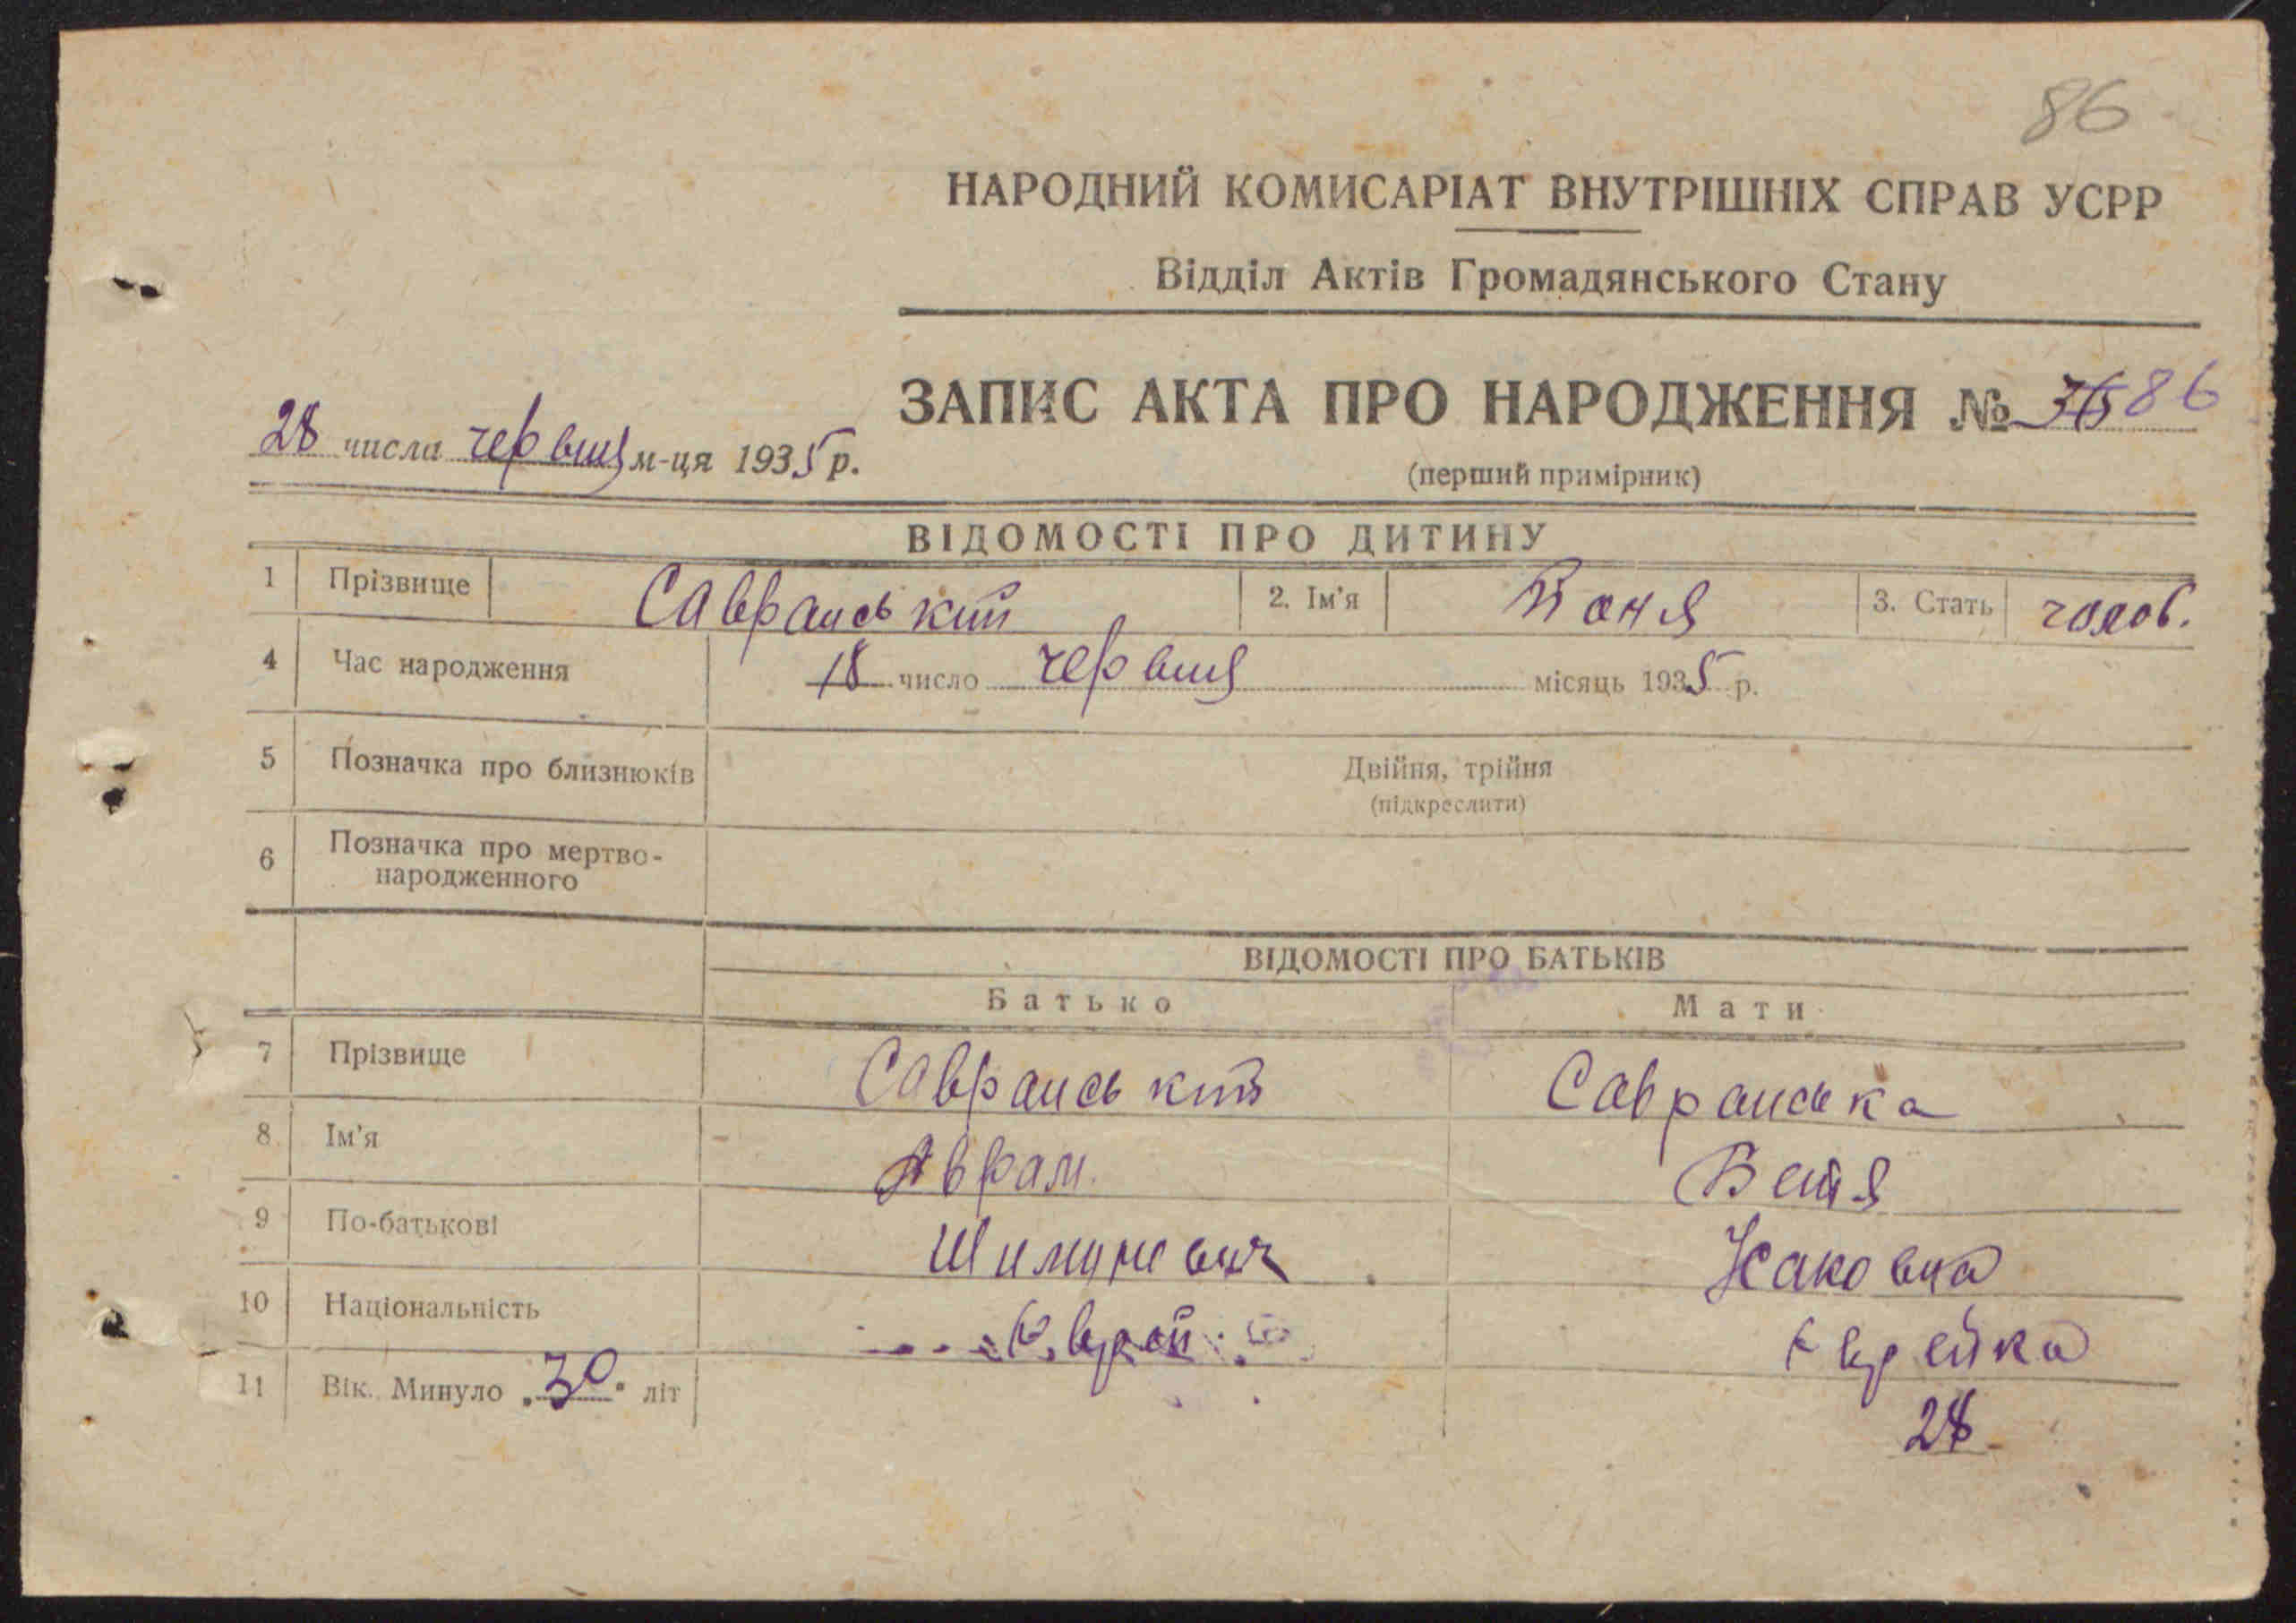 86
НАРОДНИЙ КОМИСАРІАТ ВНУТРІШНІХ СПРАВ УСРР
Відділ Актів Громадянського Стану
ЗАПИС АКТА ПРО НАРОДЖЕННЯ № 86
28 числа червня м-ця 1935 р.
(перший примірник)
ВІДОМОСТІ ПРО ДИТИНУ
1 Прізвище Савранський 2. Ім'я 3. Стать чолов.
4 Час народження 18 число червня місяць 1935 р.
5 Позначка про близнюків Двійня, трійня
(підкреслити)
6 Позначка про мертво-
народженного
ВІДОМОСТІ ПРО БАТЬКІВ
Батько Мати
7 Прізвище Савранський Савранська
8 Ім'я Аврам
9 По-батькові
10 Національність Єврей Єврейка
11 Вік. Минуло „30“ літ 28